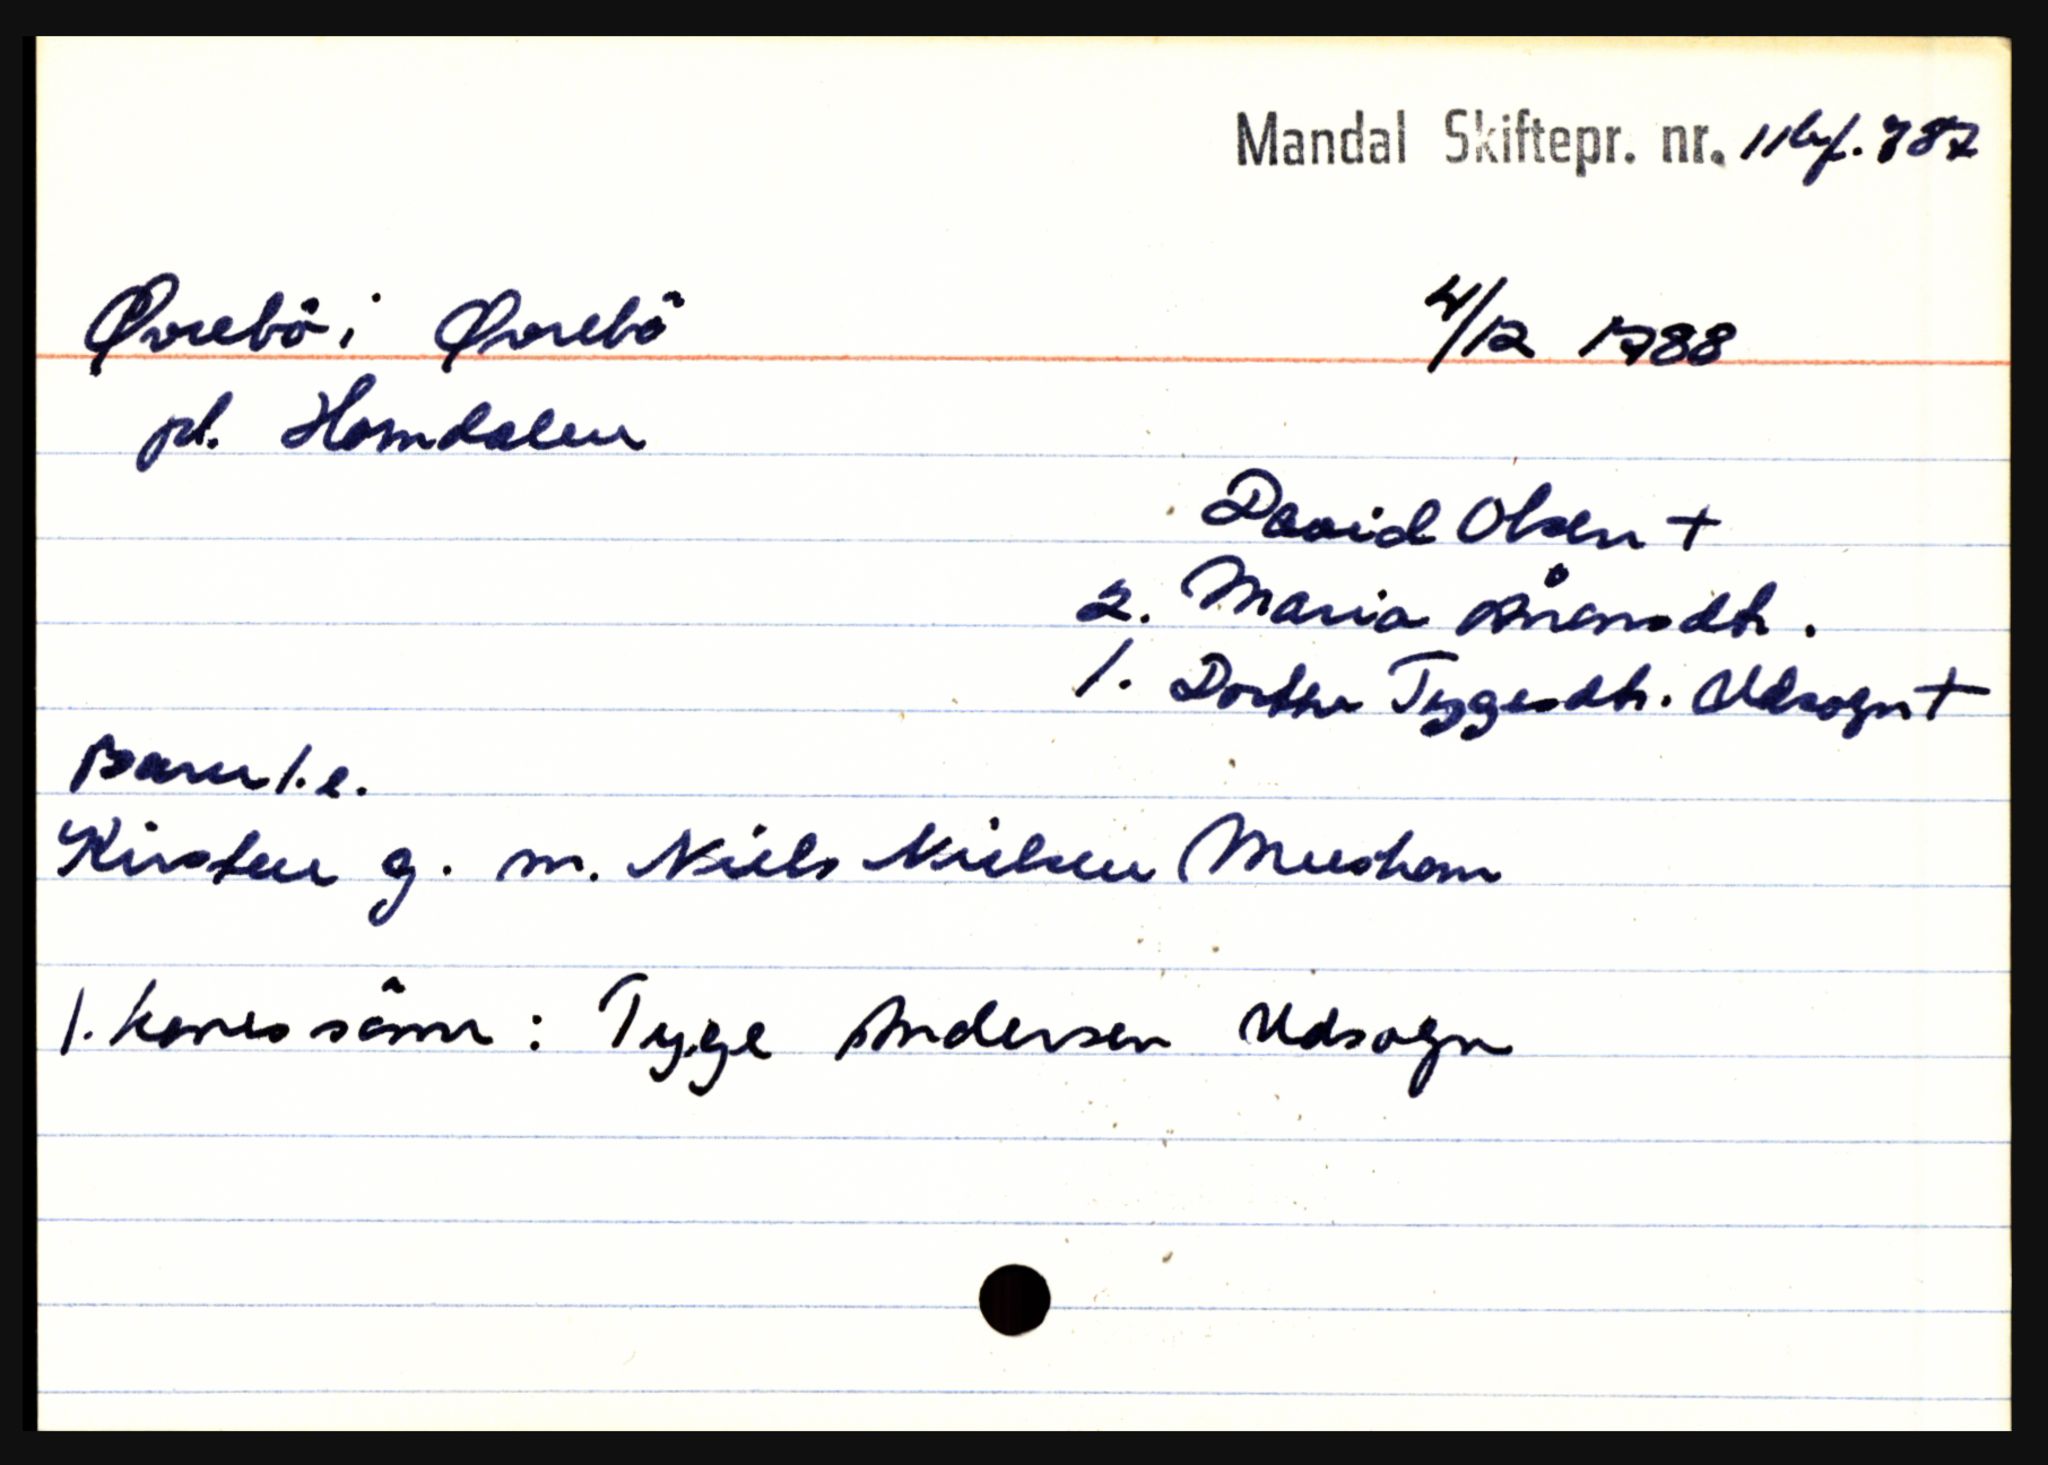 Mandal Skiftepr. nr. 11bf. 787
Øvrebö i Øvrebö 4/12 1788
pl. Homdalen
David Olsen +
2. Maria Ånensdtr.
1. Dorthe Tygesdtr. Udsogn +
Barn 1. e.
Kirsten g. m. Niels Nielsen Mushom
1. kones sönn: Tyge Andersen Udsogn